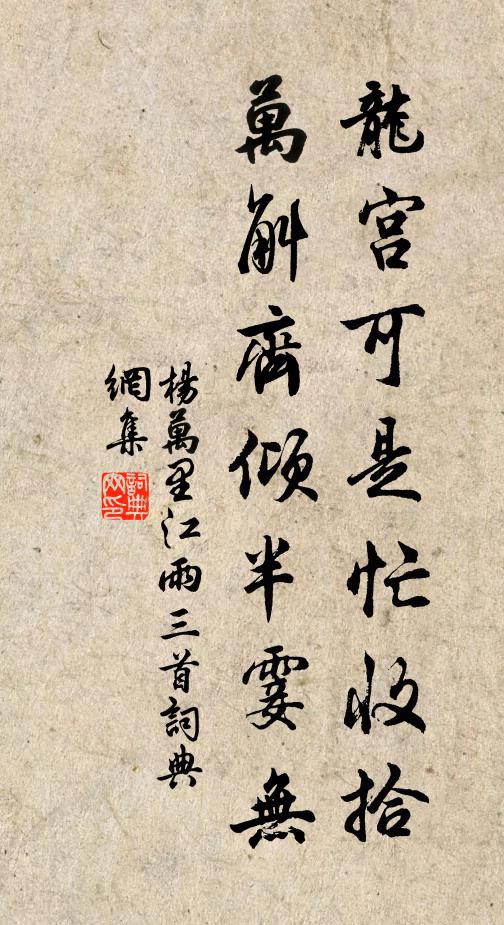 龍宮可是忙收拾
萬斛齊傾半霎無
楊萬里江雨三首詞典
網集
詞典
網印